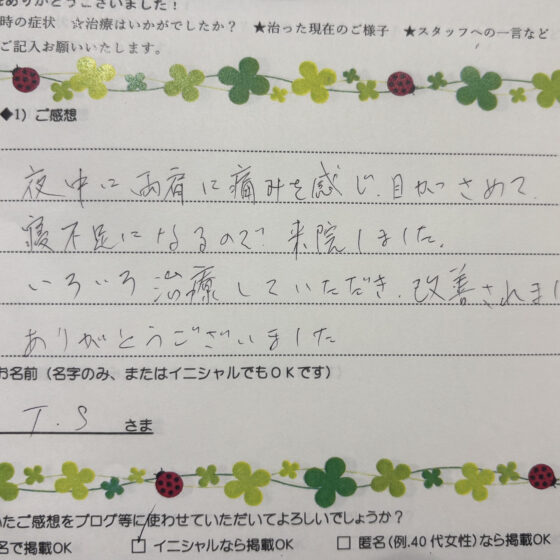 をありがとうございました！
時の症状　☆治療はいかがでしたか？　★治った現在のご様子　★スタッフへの一言など
ご記入お願いいたします。
◆1）ご感想
夜中に両肩に痛みを感じ、目がさめて、
寝不足になるので、来院しました。
いろいろ治療していただき、改善されまし
ありがとうございました
お名前（名字のみ、またはイニシャルでもＯＫです）
T.S さま
いたご感想をブログ等に使わせていただいてよろしいでしょうか？
名で掲載OK　□ イニシャルなら掲載OK　□ 匿名(例.40代女性)なら掲載OK